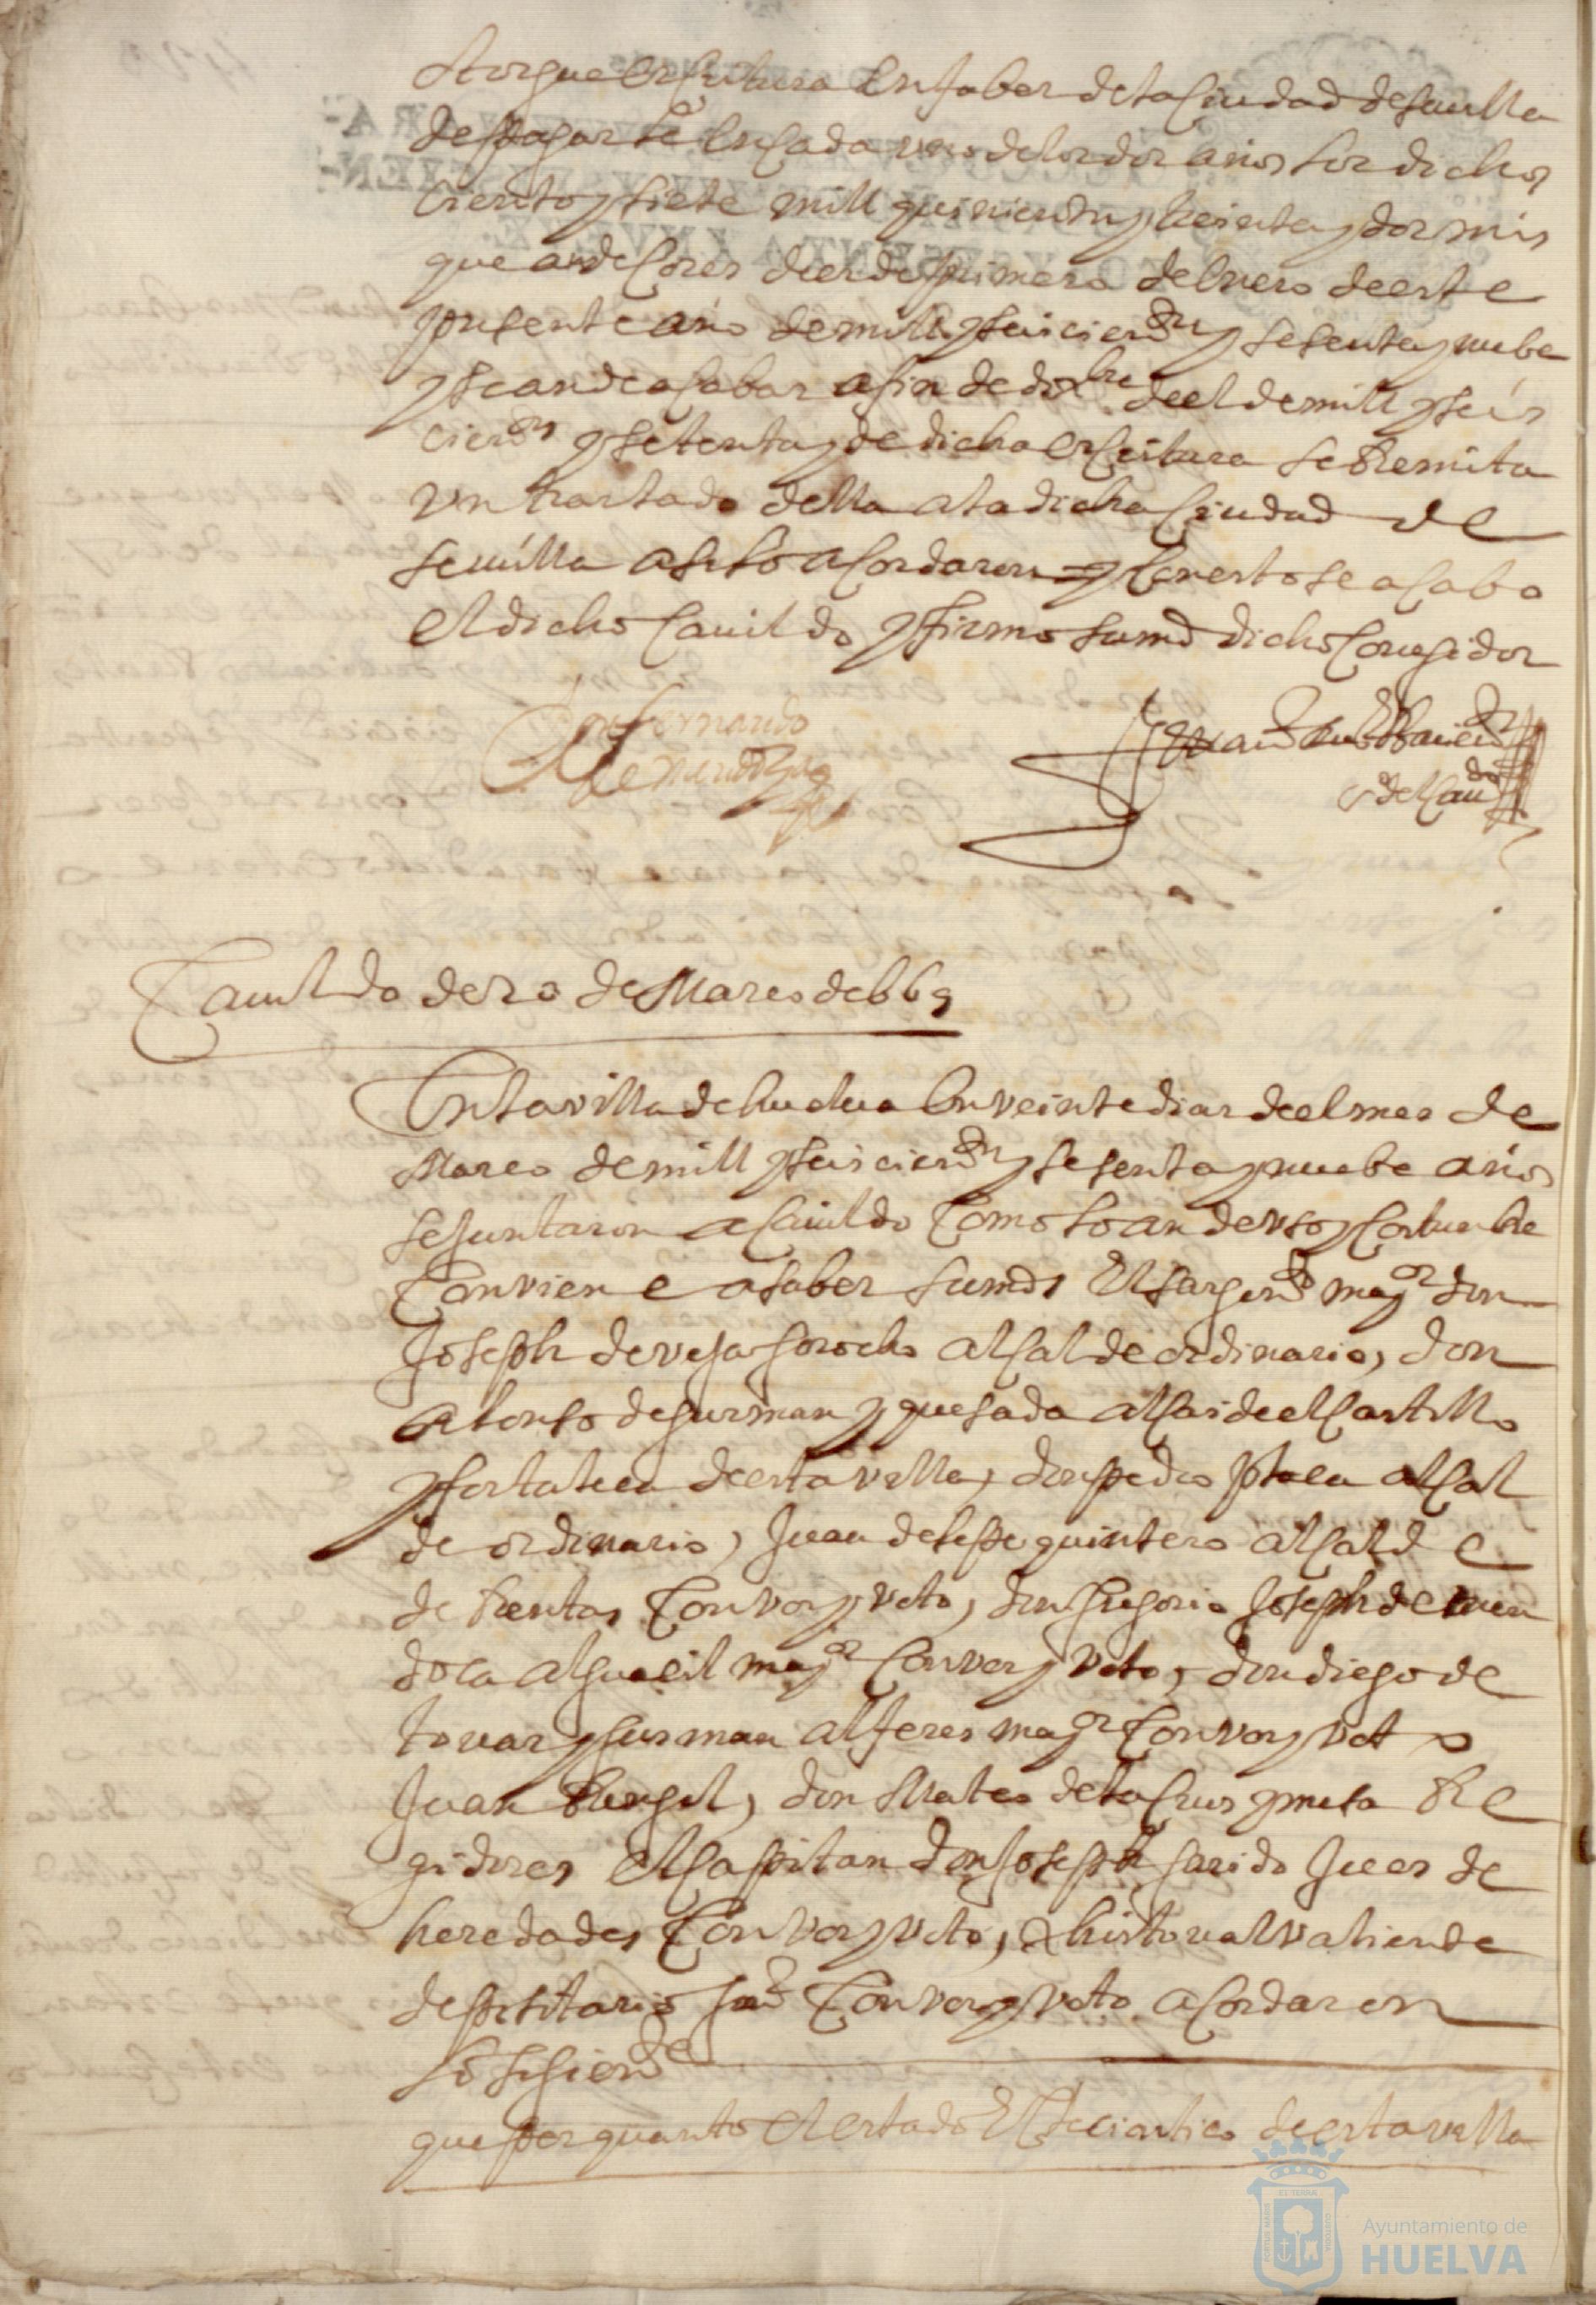 otorgue escritura en fabor de la ciudad de seuilla
de pagarle en cada uno de los dos años los dichos
ciento y siete mill quinientos y treinta y dos mrs
que an de correr desde primero de Enero de este
presente año de mill y seiscientos y sesenta y nuebe
y se an de acabar a fin de dizbre de el de mill y seis
cientos y setenta y de dicha escritura se Remita
vn traslado della a la dicha ciudad de
seuilla asi lo acordaron y con esto se acabo
el dicho cauildo y firmo su md dicho Corregidor
Don fernando
de Mendoza
Juan
s de cauo
Cauildo de 20 de Março de 669
En la villa de huelua en veinte dias de el mes de
Março de mill y seiscientos y sesenta y nuebe años
se juntaron a cauildo Como lo an de vso y costunbre
Conviene a saber sus mds El sargento mayor don
Joseph de vega Garrocho alcalde ordinario, don
alonso de gusman y quesada alcaide el castillo
y fortaleça de esta villa, don pedro plaça alcal
de ordinario, Juan de lepe quintero alcalde
de Rentas Con voz y voto, don gregorio Joseph de men
doça alguacil mayor Con voz y voto, don diego de
tovar y gusman alferes mayor Con voz y voto
Juan Rangel, don Mateo de la crus y mesa Re
gidores el capitan don Joseph garrido Jues de
heredades Con voz y voto, christoual valiente
depositario Gral Con voz y voto acordaron
lo siguiente
que por quanto el estado Eclesiastico de esta villa
Ayuntamiento de
HUELVA